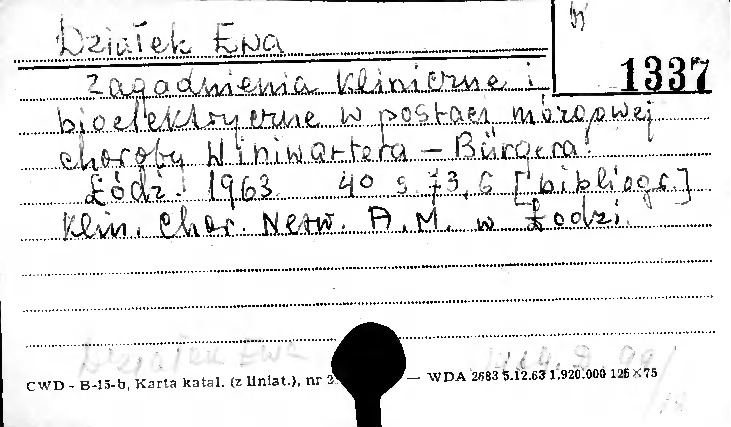 Działek Ewa
1337
Zagadnienia kliniczne i
bioelektryczne w postaci mózgowej
choroby Winiwartera – Bürgera.
Łódź. 1963 40 s. 73, 6 [bibliogr.]
Klin. Chor. Nerw. A.M. w Łodzi.
Działek Ewa
CWD - B-15-b, Karta katal. (z liniat.), nr — WDA 2683 5.12.63 1.920.000 125×75